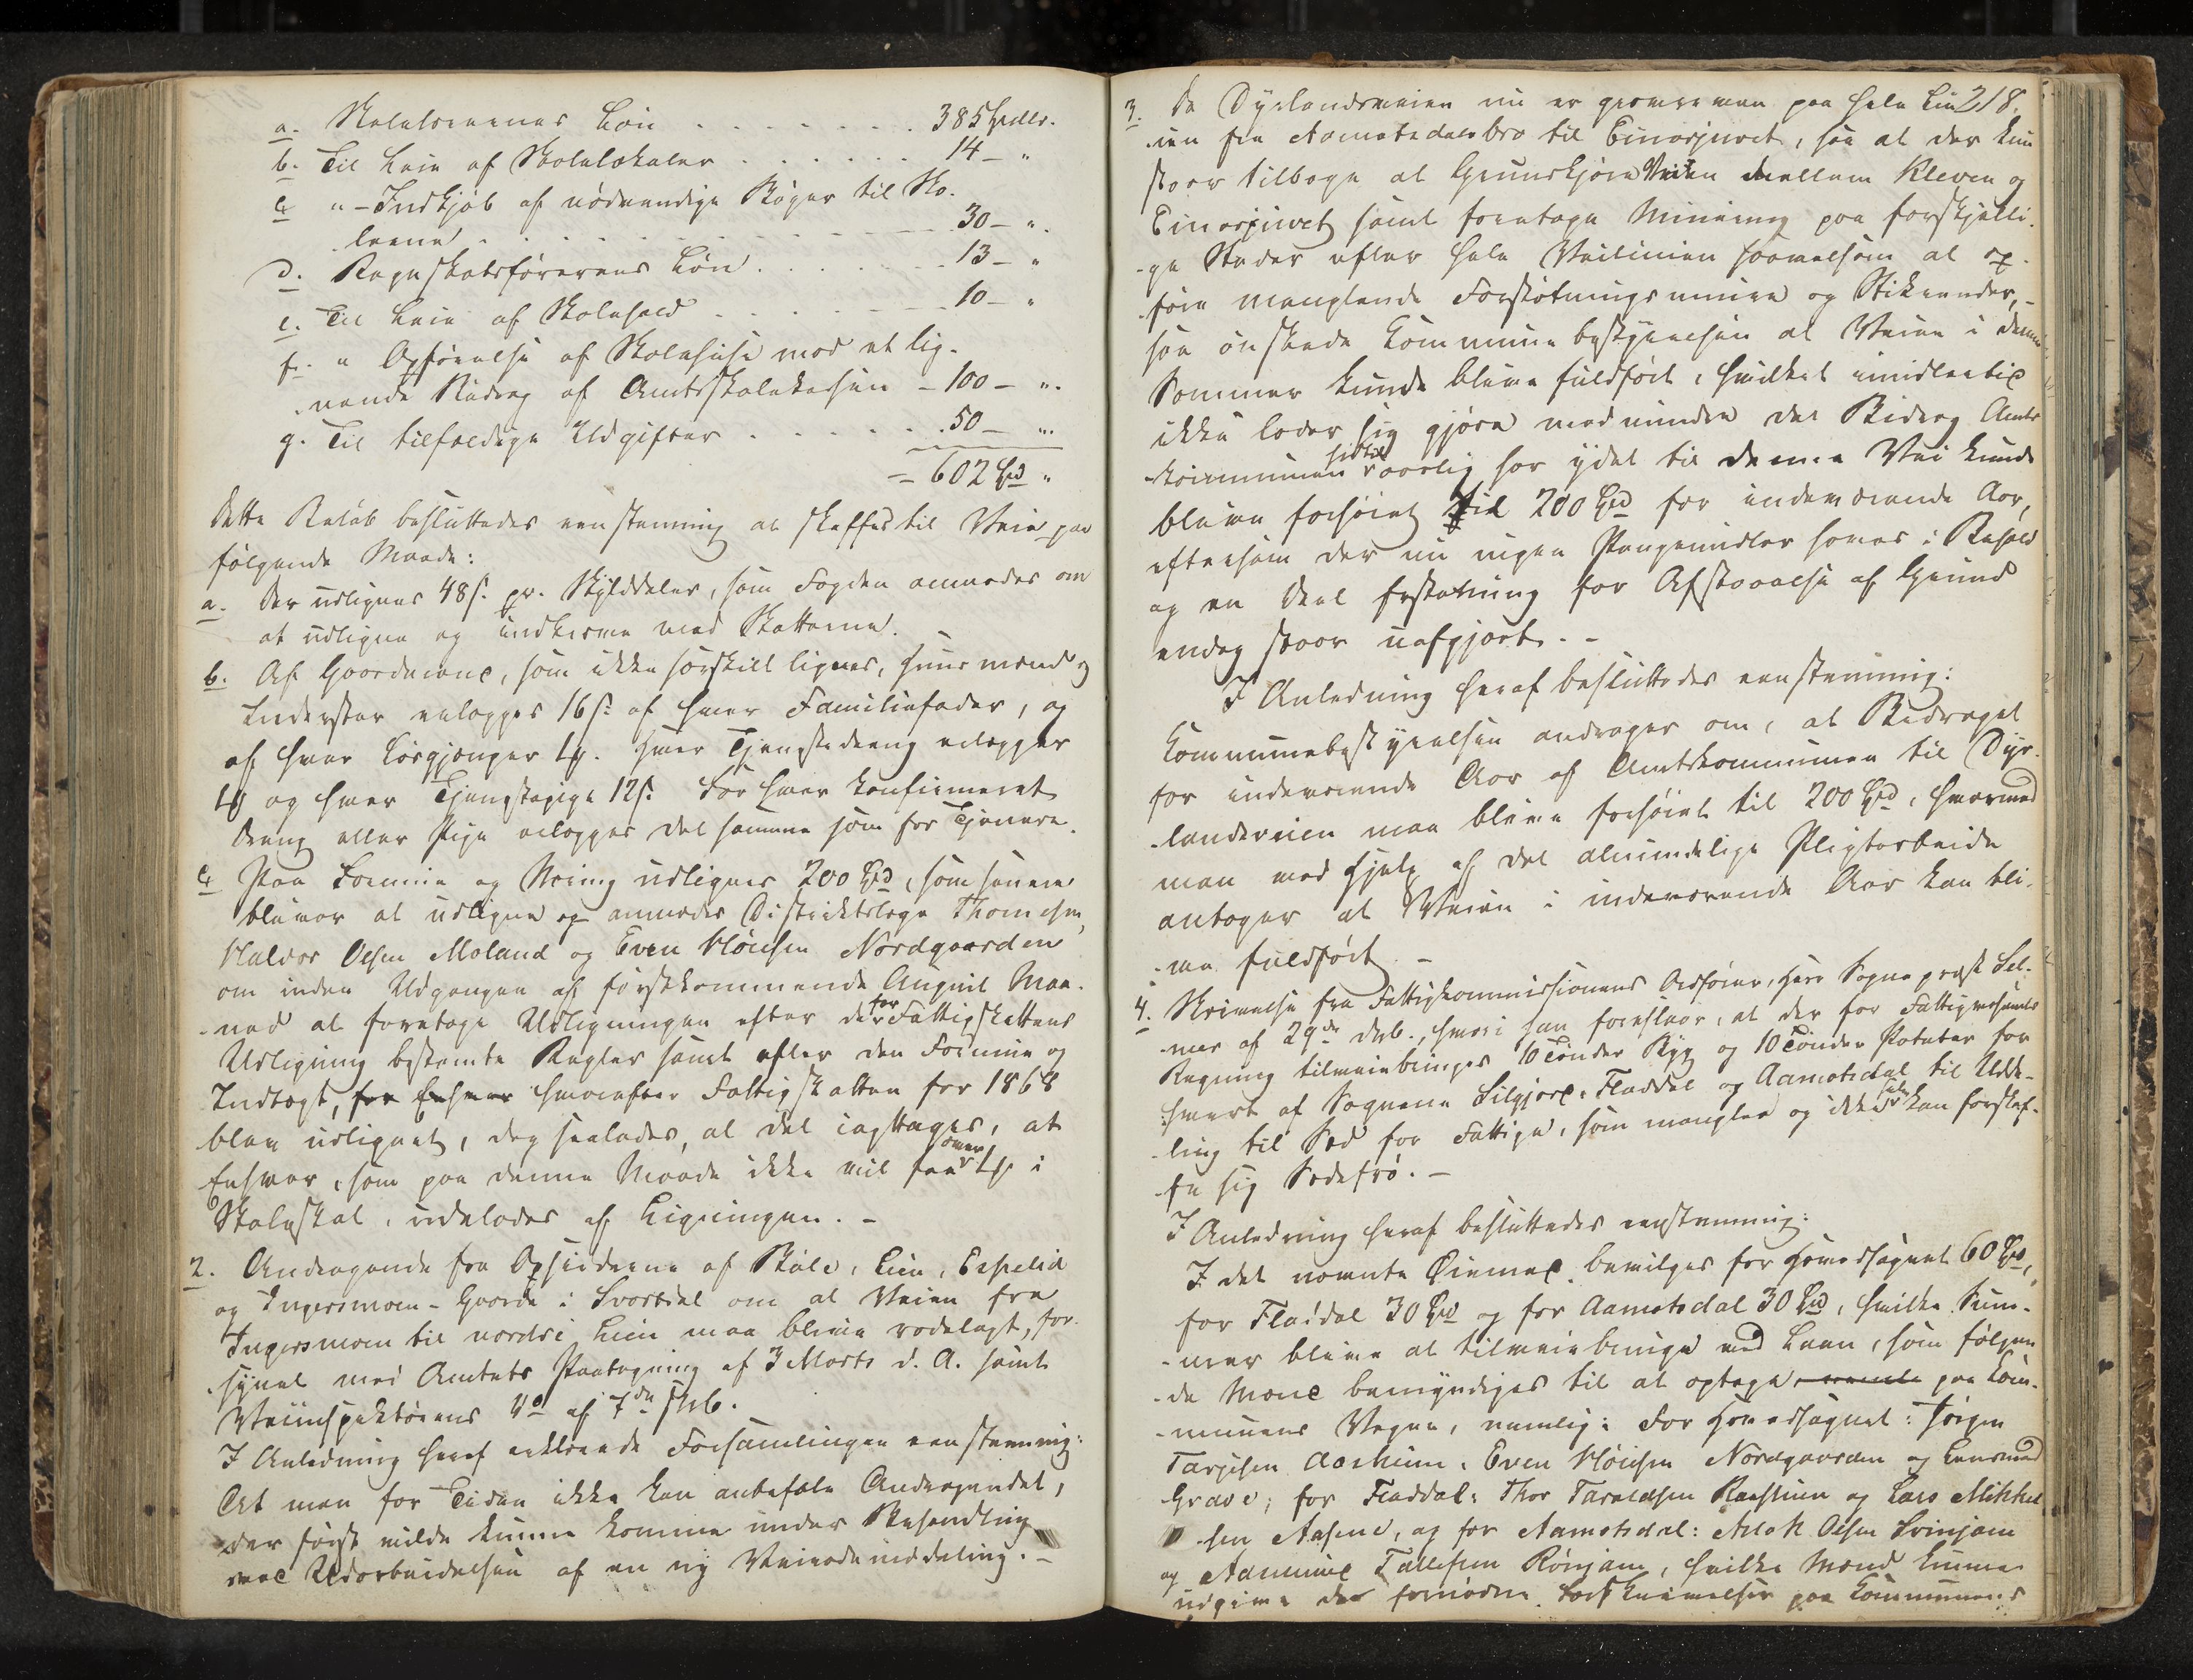 a. Skolelærernes Løn . . . . . . . . 385 Spdlr.
b. Til Leie af Skolelokaler . . . . . . 14 – "
c. " – Indkjøb af nødvendige Bøger til Sko-
lerne . . . . . . . . 30 – "
d. Regnskabsførerens Løn . . . . . . 13 – "
e. Til Leie af Skolehold . . . . . 10 – "
f. " Opførelse af Skolehuse mod et lig-
nende Bidrag af Amtsskolekassen – 100 – "
g. Til tilfældige Udgifter . . . . . . 50 – "
= 602 Spd "
Dette Beløb besluttedes eenstemmig at skaffes til Veie paa
følgende Maade:
a. Der udlignes 48 s. pr. Skylddaler, som Fogden anmodes om
at udligne og indkræve med Skatterne.
b. Af Gaardmænd, som ikke særskilt lignes, Huusmænd og
Inderster erlægges 16 s. af hver Familiefader, og
af hver Løsgjænger 1 Ort. Hver Tjenestedreng erlægger
1 Ort og hver Tjenestepige 12 s. For hver konfirmeret
Dreng eller Pige erlægges det samme som for Tjenere.
c. Paa Formue og Næring udlignes 200 Spd, som
bliver at udligne og anmodes Distriktslæge Thomesen,
Haldor Olsen Moland og Even Høiesen Nordgaarden
om inden Udgangen af førstkommende August Maa-
ned at foretage Udligningen efter de for Fattigskattens
Udligning bestemte Regler samt efter den Formue og
Indtægt, for Enhver hvorefter Fattigskatten for 1868
blev udlignet, dog saaledes, at det iagttages, at
Enhver, som paa denne Maade ikke vil faa over 1 Ort i
Skoleskat, udelades af Ligningen. –
2. Andragende fra Opsidderne af Kile, Lien, Espelid
og Ingersmoen-Gaarde i Svartdal om at Veien fra
Ingersmoen til nordre Lien maa blive rodelagt, for-
synet med Amtets Paategning af 3 Marts d. A. samt
Veiinspektørens do af 7de s. M.
I Anledning heraf erklærede Forsamlingen eenstemmig:
At man for Tiden ikke kan anbefale Andragendet,
der først vilde kunne komme under Behandling
ved Udarbeidelsen af en ny Veirodeinddeling. –
218.
3. Da Dyrlandsveien nu er gjennemen paa hele Lin-
ien fra Aamotsdalsbro til Einarsjuvet, saa at der kun
staar tilbage at Gruuskjøre Veien mellem Kleven og
Einarsjuvet samt foretage Minering paa forskjelli-
ge Steder efter hele Veilinien saavelsom at op-
føre manglende Forstøtningsmure og Stikrender, –
saa ønskede Kommunebestyrelsen at Veien i denne
Sommer kunde blive fuldført, hvilket imidlertid
ikke lader sig gjøre medmindre det Bidrag Amts-
kommunen hidtil aarlig har ydet til denne Vei kunde
blive forhøiet til 200 Spd for indeværende Aar,
eftersom der nu ingen Pengemidler haves i Behold
og en Deel Erstatning for Afstaaelse af Grund
endog staar uafgjort. –
I Anledning heraf besluttedes eenstemmig:
Kommunebestyrelsen andrager om, at Bidraget
for indeværende Aar af Amtskommunen til Dyr-
landsveien maa blive forhøiet til 200 Spd, hvormed
man med Hjelp af det almindelige Pligtarbeide
antager at Veien i indeværende Aar kan bli-
ve fuldført. –
4. Skrivelse fra Fattigkommissionens Ordfører, Herr Sogneprest Sel-
mer af 29de , hvori han foreslaar, at der for Fattigvæsenets
Regning tilveiebringes 10 Tønder Byg og 10 Tønder Poteter for
hvert af Sognene Silgjord, Fladdal og Aamotsdal til Udde-
ling til Sæd for Fattige, som mangler og ikke selv kan forskaf-
fe sig Sædefrø. –
I Anledning heraf besluttedes eenstemmig:
I det nævnte Øiemed bevilges for Hovedsognet 60 Spd,
for Fladdal 30 Spd og for Aamotsdal 30 Spd, hvilke Sum-
mer blive at tilveiebringe ved Laan, som følgen-
de Mænd bemyndiges til at optage paa Kom-
munens Vegne, nemlig: For Hovedsognet: Jørgen
Tarjesen Aarhuus, Even Høiesen Nordgaarden og Lensmand
Grave; for Fladdal: Thor Taraldsen Raashuus og Lars Mikkel-
sen Aasene, og for Aamotsdal: Aslak Olsen Svinjam
og Aanund Tallefsen Rønjam, hvilke Mænd kunne
udgive de fornødne Forskrivelser paa Kommunens